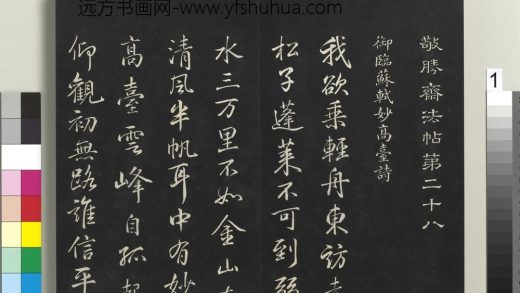 远方书画网-www.yfshuhua.com
敬勝齋法帖第二十八
御臨蘇軾妙高臺詩
我欲乘輕舟東訪
松子蓬萊不可到
水三万里不如金山
清風半帆耳中有妙
高臺雲峰自孤起
仰觀初無路誰信平
1